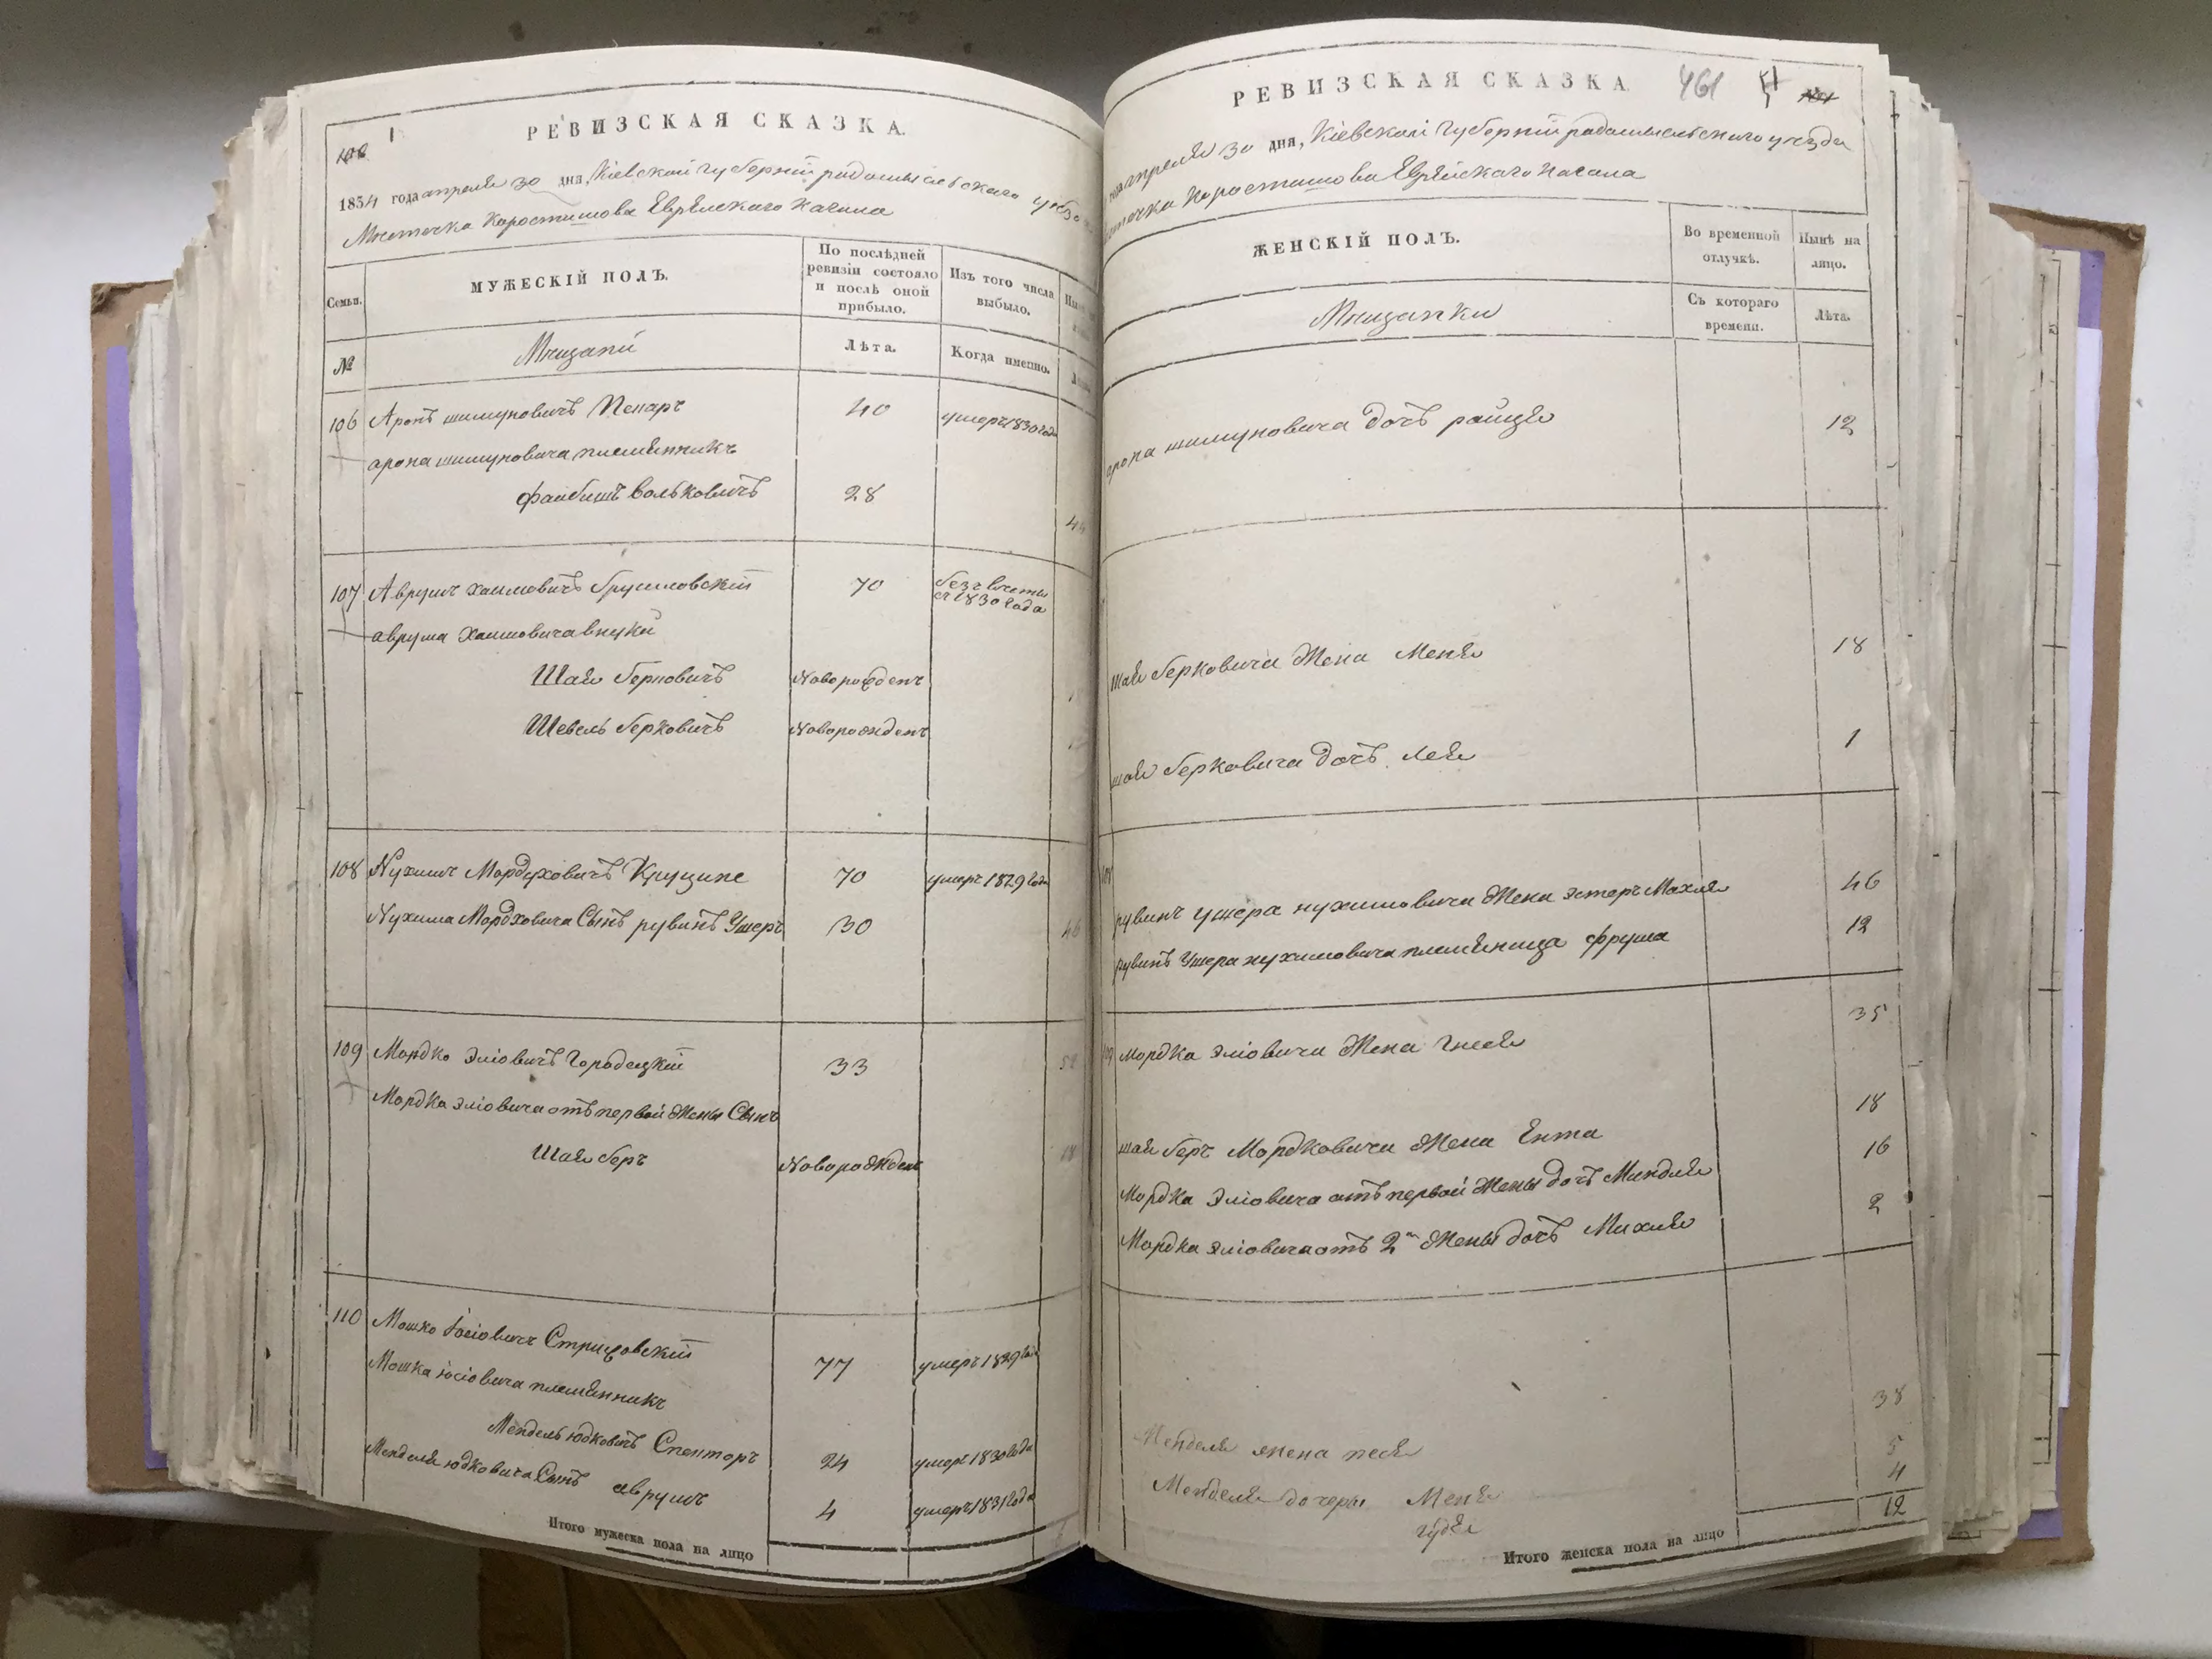 РЕВИЗСКАЯ СКАЗКА.
1834 года апреля 30 дня, Кіевской губерніи радомысльского уезда
Местечка Коростишова Еврейскаго Кагала
Семьи.
МУЖЕСКІЙ ПОЛЪ.
По послѣдней ревизіи состояло и послѣ оной прибыло.
Изъ того числа выбыло.
№
Мещани
Лѣта.
Когда именно.
106 Аронъ шимуновичъ Пекаръ 40 умеръ 1830 года
арона шимуновича племянникъ
фаибишъ вольковичъ 28 44
107 Аврумъ хаимовичъ Брусиловскій 70 безъ вести съ 1830 года
аврума хаимовича внуки
Шая берковичъ Новорожденъ
Шевель берковичъ Новорожденъ
108 Нухимъ Мордуховичъ 70 умеръ 1829 года
Нухима Мордховича Сынъ рувинъ Ушеръ 30 46
109 Мордко эліовичъ Городецкій 33
Мордка эліовича отъ первой жены Сынъ
Шая беръ Новорожденъ 18
110 Мошко іосіовичъ 77 умеръ 1829 года
Мошка іосіовича племянникъ
Мендель юдковичъ Спекторъ 24 умеръ 1830 года
Менделя юдковича Сынъ аврумъ 4 умеръ 1831 года
Итого мужеска пола на лицо
РЕВИЗСКАЯ СКАЗКА
461
апреля 30 дня, Кіевской губерніи радомысльского уезда
Коростишова Еврейскаго Кагала
ЖЕНСКІЙ ПОЛЪ.
Во временной отлучкѣ.
Нынѣ на лицо.
Мещанки
Съ котораго времени.
Лѣта.
арона шимуновича дочъ райзя 12
шая берковича жена Меня 18
шая берковича дочъ лея 1
рувинъ ушера нухимовича жена эстеръ Махля 46
рувинъ Ушера нухимовича племяница фрума 12
109 Мордка эліовича жена гнеся 35
шая беръ Мордковича жена Ента 18
Мордка эліовича отъ первой жены дочъ Миндля 16
Мордка эліовича отъ 2й жены дочъ Махля 2
Менделя жена песя 38
Менделя дочеры Меня 5
гудя 4
12
Итого женска пола на лицо